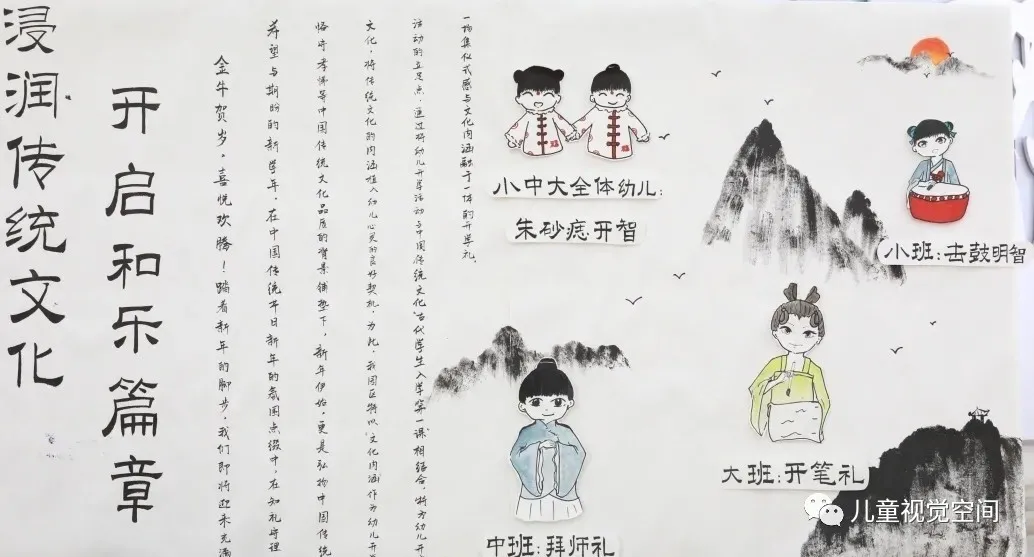 浸润传统文化
开启和乐篇章
金牛贺岁，喜悦欢腾！踏着新年的脚步，我们即将迎来充满
希望与期盼的新学年，在中国传统节日新年的氛围点缀中，在知礼守理
恪守孝悌等中国传统文化品质的背景铺垫下，新年伊始，更是弘扬中国传统
文化，将传统文化的内涵植入幼儿心灵的良好契机，为此，我园区特以文化内涵作为幼儿开
活动的立足点，通过将幼儿开学活动与中国传统文化"古代学生入学第一课"相结合，特为幼儿开
一场集仪式感与文化内涵融于一体的开学礼。
小中大全体幼儿：
朱砂痣开智
小班：击鼓明智
大班：开笔礼
中班：拜师礼
儿童视觉空间